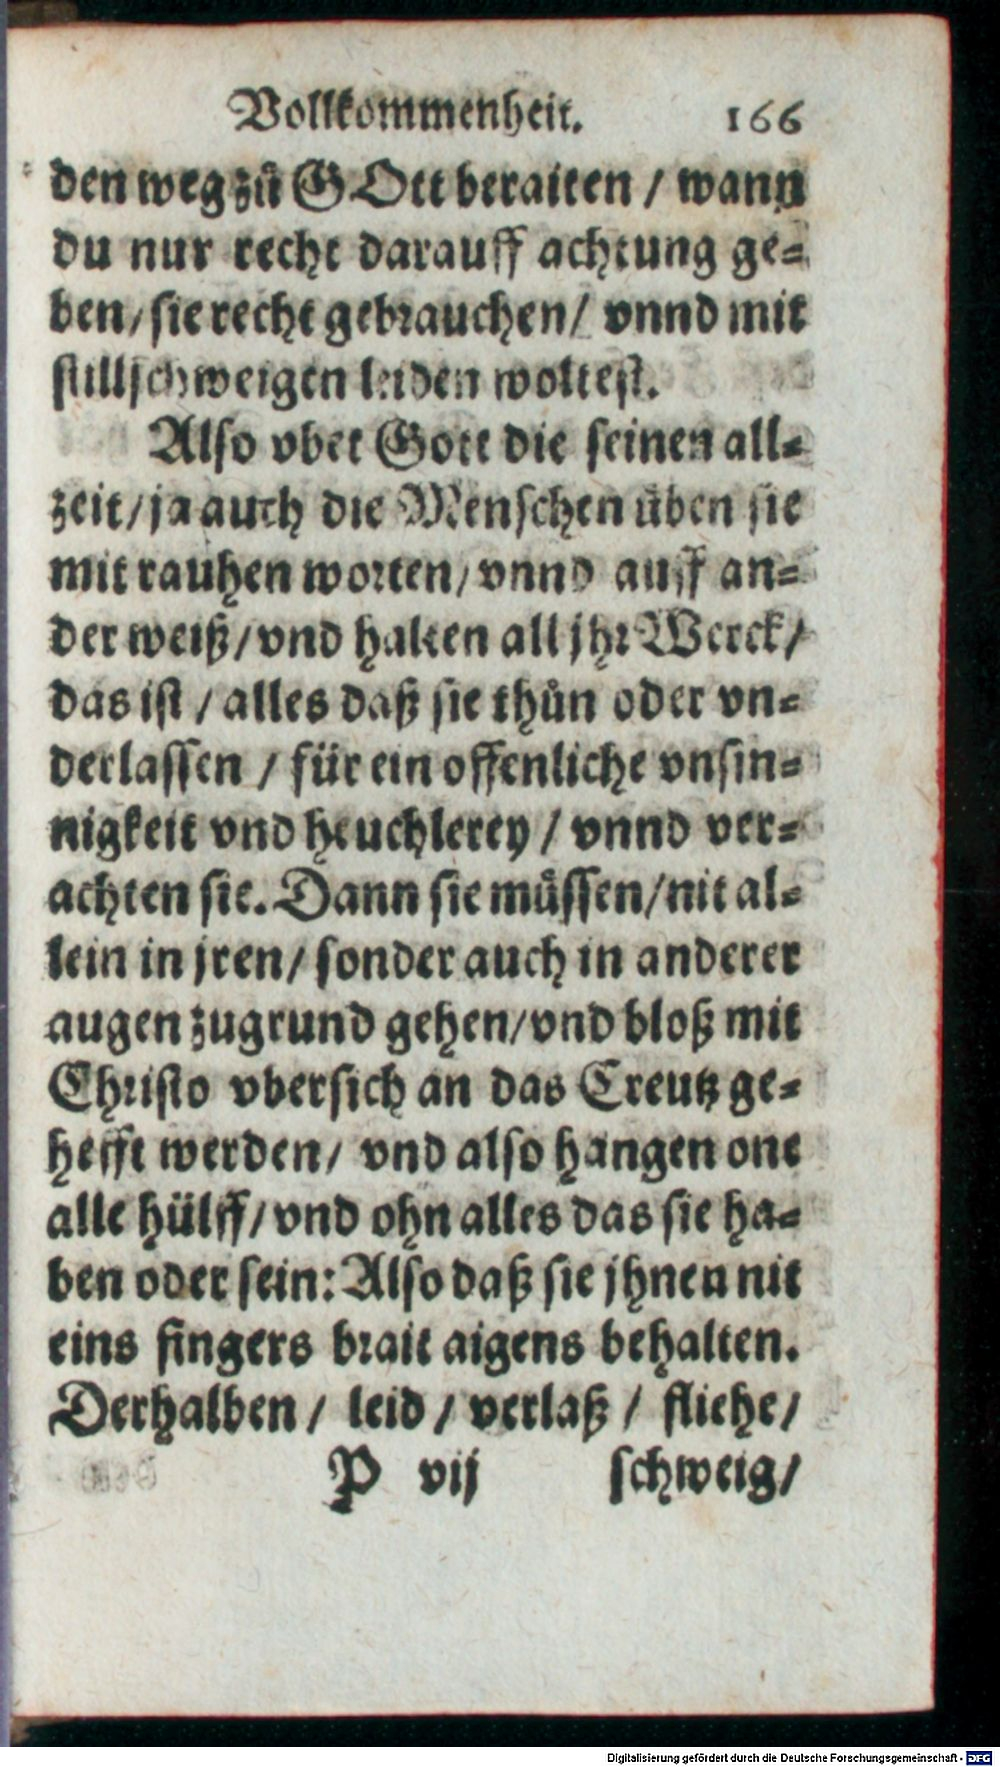 Vollkommenheit. 166
den weg zů GOtt beraiten / wann
du nur recht darauff achtung ge-
ben/ sie recht gebrauchen/ vnnd mit
stillschweigen leiden woltest.
Also vbet Gott die seinen all-
zeit/ ja auch die Menschen üben sie
mit rauhen worten/ vnnd auff an-
der weiß/ vnd halten all jhr Werck/
das ist / alles daß sie thůn oder vn-
derlassen / für ein offenliche vnsin-
nigkeit vnd heuchlerey / vnnd ver-
achten sie. Dann sie müssen/ nit al-
lein in jren/ sonder auch in anderer
augen zugrund gehen/ vnd bloß mit
Christo vbersich an das Creutz ge-
hefft werden/ vnd also hangen one
alle hülff/ vnd ohn alles das sie ha-
ben oder sein: Also daß sie jhnen nit
eins fingers brait aigens behalten.
Derhalben / leid / verlaß / fliehe/
P vij schweig/
Digitalisierung gefördert durch die Deutsche Forschungsgemeinschaft - DFG